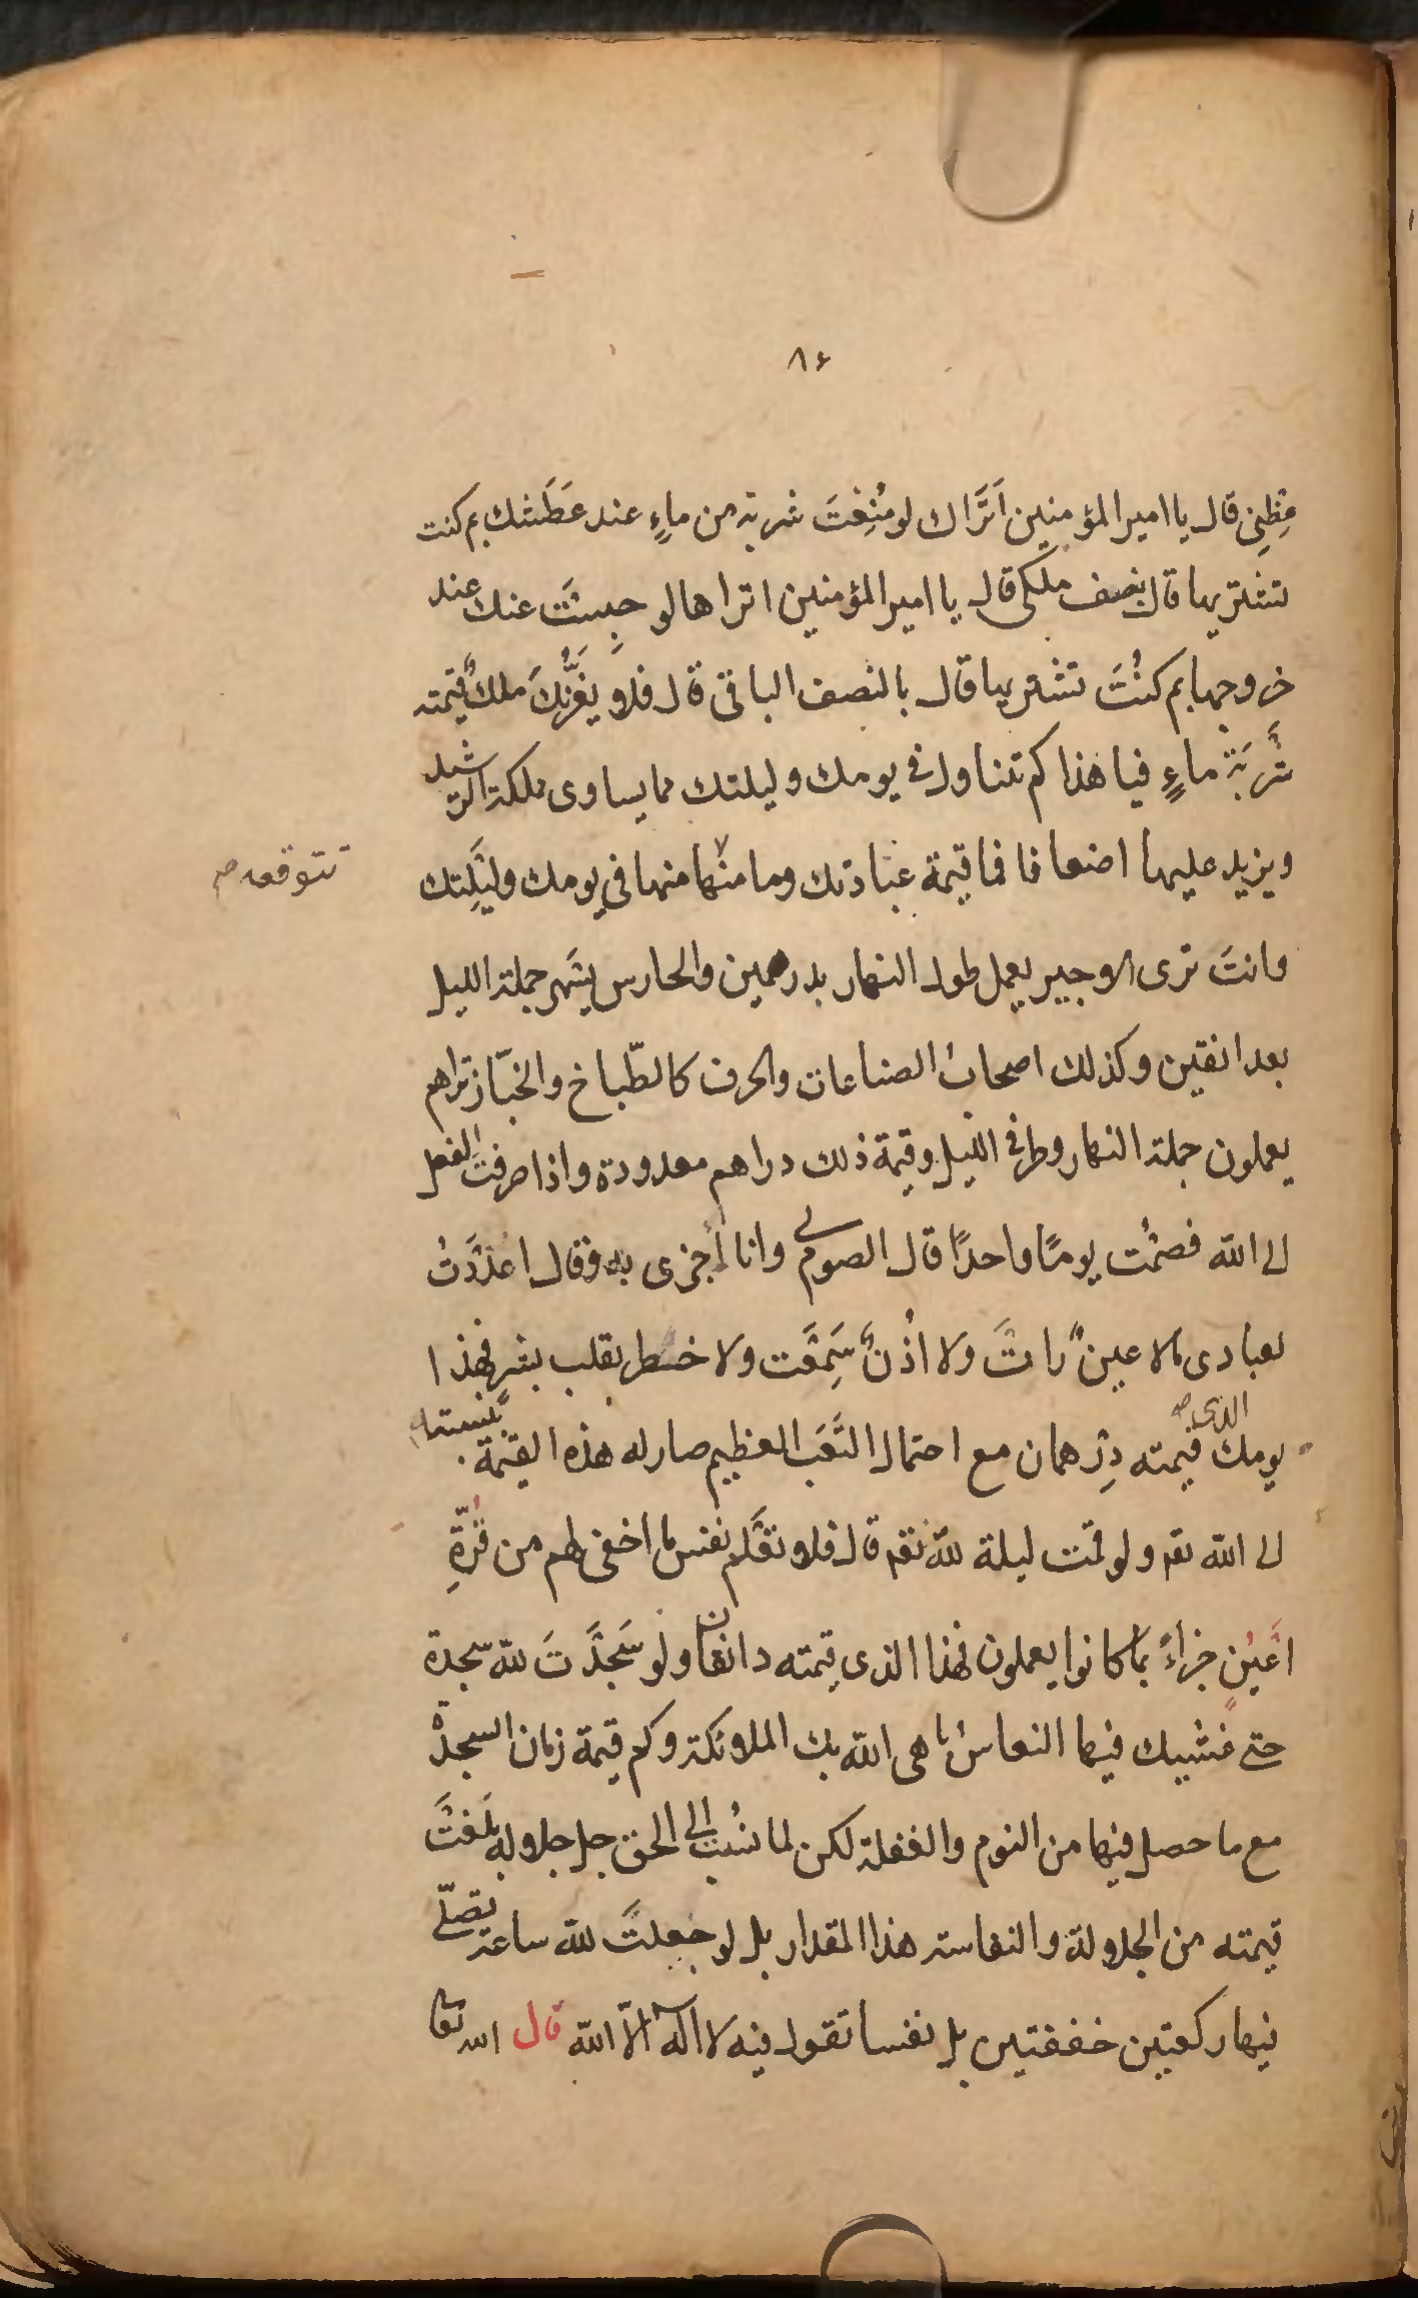 ٨٦
عِظنِى قال يا امير المؤمنين اَتَراك لو مُنِعْتَ شربة من ماءٍ عند عَطَشك بم كنت
تشتريها قال بنصف ملكى قال يا امير المؤمنين اتراها لو حبِسَتْ عنك عند
خروجها بم كنْتَ تشتريها قال بالنصف الباقى قال فلا يغرَّنك ملكٌ قيمته
شَربَة ماءٍ فيا هذا كم تتناول فى يومك وليلتك مما يساوى مملكة الرشيد
ويزيد عليها اضعافا فما قيمة عبادتك وما منها فى يومك وليلتك
تتوقعه صح
وانتَ ترى الاجير يعمل طول النهار بدرهمين والحارس يسَهر جملة الليل
بدانقين وكذلك اصحابُ الصناعات والحرف كالطّباخ والخبّاز تراهم
يعملون جملة النهار وطرفى الليل وقيمة ذلك دراهم معدودة واذا صرفت الفعل
الى الله فصمْت يومًا واحدًا قال الصوم لى وانا أجزى به وقال اعدَدْتُ
لعبادى ما لا عينٌ راتْ ولا اُذُنٌ سَمِعَت ولا خطر بقلب بشرٍ فهذا
يومك الذى صح قيمته دِرْهمان مع احتمال التَّعَب العظيم صار له هذه القيمة بنسبته
الى الله تع ولو قمت ليلة لله تع قال فلا تعْلم نفس ما اخفى لهم من قُرّةِ
اَعْيُنٍ جزاءً بما كانوا يعملون فهذا الذى قيمته دانقان ولو سَجَدْتَ لله سجدة
حتى غشيك فيها النعاسُ باهى الله بك الملائكة وكم قيمة زمان السجدة
مع ما حصل فيها من النوم والغفلة لكن لما نُسِبت الى الحق جل جلاله بلَغَتْ
قيمته من الجلالة والنفاسة هذا المقدار بل لو جعلتَ لله ساعة تصلّى
فيها ركعتين خفيفتين بل نفسا تقول فيه لا اله الّا الله قال الله تعا